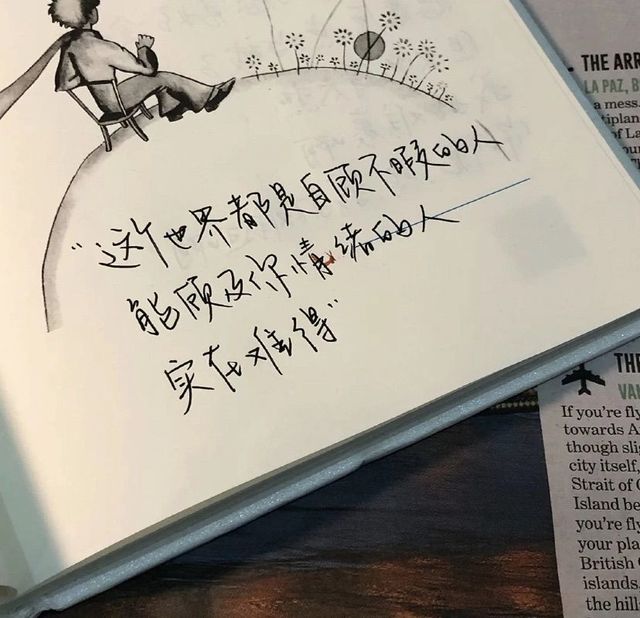 "这个世界都是自顾不暇的人
能顾及你情绪的人
实在难得"
THE ARR
LA PAZ, B
a mess
tiplan
of La
THE
VAN
If you're fly
towards A
though sli
city itself,
Strait of G
Island be
you're fly
your pla
British
islands.
the hill